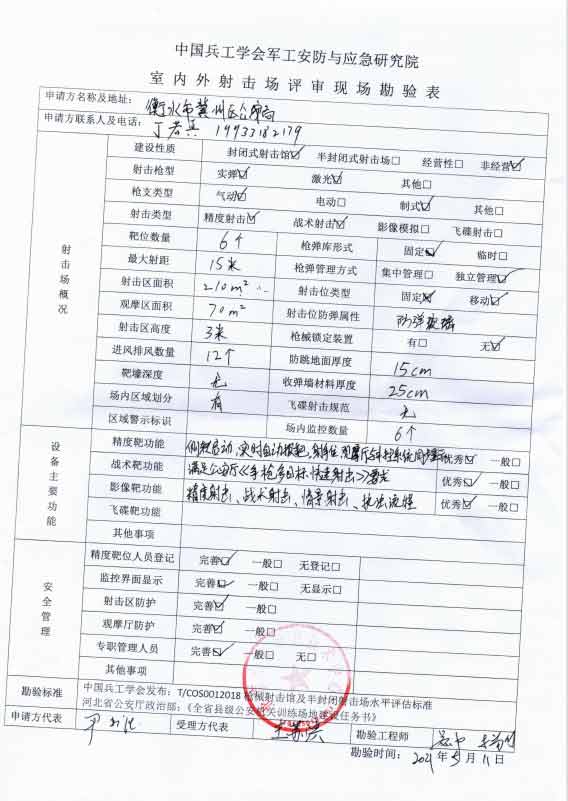 中国兵工学会军工安防与应急研究院
室内外射击场评审现场勘验表
申请方名称及地址：衡水市冀州区公安局
申请方联系人及电话： 19933182179
射击场概况
建设性质 封闭式射击馆☑ 半封闭式射击场□ 经营性□ 非经营☑
射击枪型 实弹☑ 激光☑ 其他□
枪支类型 气动☑ 电动□ 制式☑ 其他□
射击类型 精度射击☑ 战术射击☑ 影像模拟□ 飞碟射击□
靶位数量 6个 枪弹库形式 固定☑ 临时□
最大射距 15米 枪弹管理方式 集中管理□ 独立管理☑
射击区面积 210m² 射击位类型 固定☑ 移动☑
观摩区面积 70m² 射击位防弹属性 防弹玻璃
射击区高度 3米 枪械锁定装置 有□ 无☑
进风排风数量 12个 防跳地面厚度 15cm
靶壕深度 无 收弹墙材料厚度 25cm
场内区域划分 有 飞碟射击规范 无
区域警示标识 场内监控数量 6个
设备主要功能
精度靶功能 实时自动报靶, 优秀☑ 一般□
战术靶功能 满足公安厅《手枪多目标快速射击》要求 优秀☑ 一般□
影像靶功能 精度射击、战术射击、情景射击、执法流程 优秀☑ 一般□
飞碟靶功能
其他事项
安全管理
精度靶位人员登记 完善☑ 一般□ 无登记□
监控界面显示 完善☑ 一般□ 无显示□
射击区防护 完善☑ 一般□
观摩厅防护 完善☑ 一般□
专职管理人员 完善☑ 一般□ 无□
其他事项
勘验标准 中国兵工学会发布：T/COS0012018 枪械射击馆及半封闭射击场水平评估标准
河北省公安厅政治部：《全省县级公安机关训练场地建设任务书》
申请方代表 受理方代表 勘验工程师
勘验时间：2021年5月11日